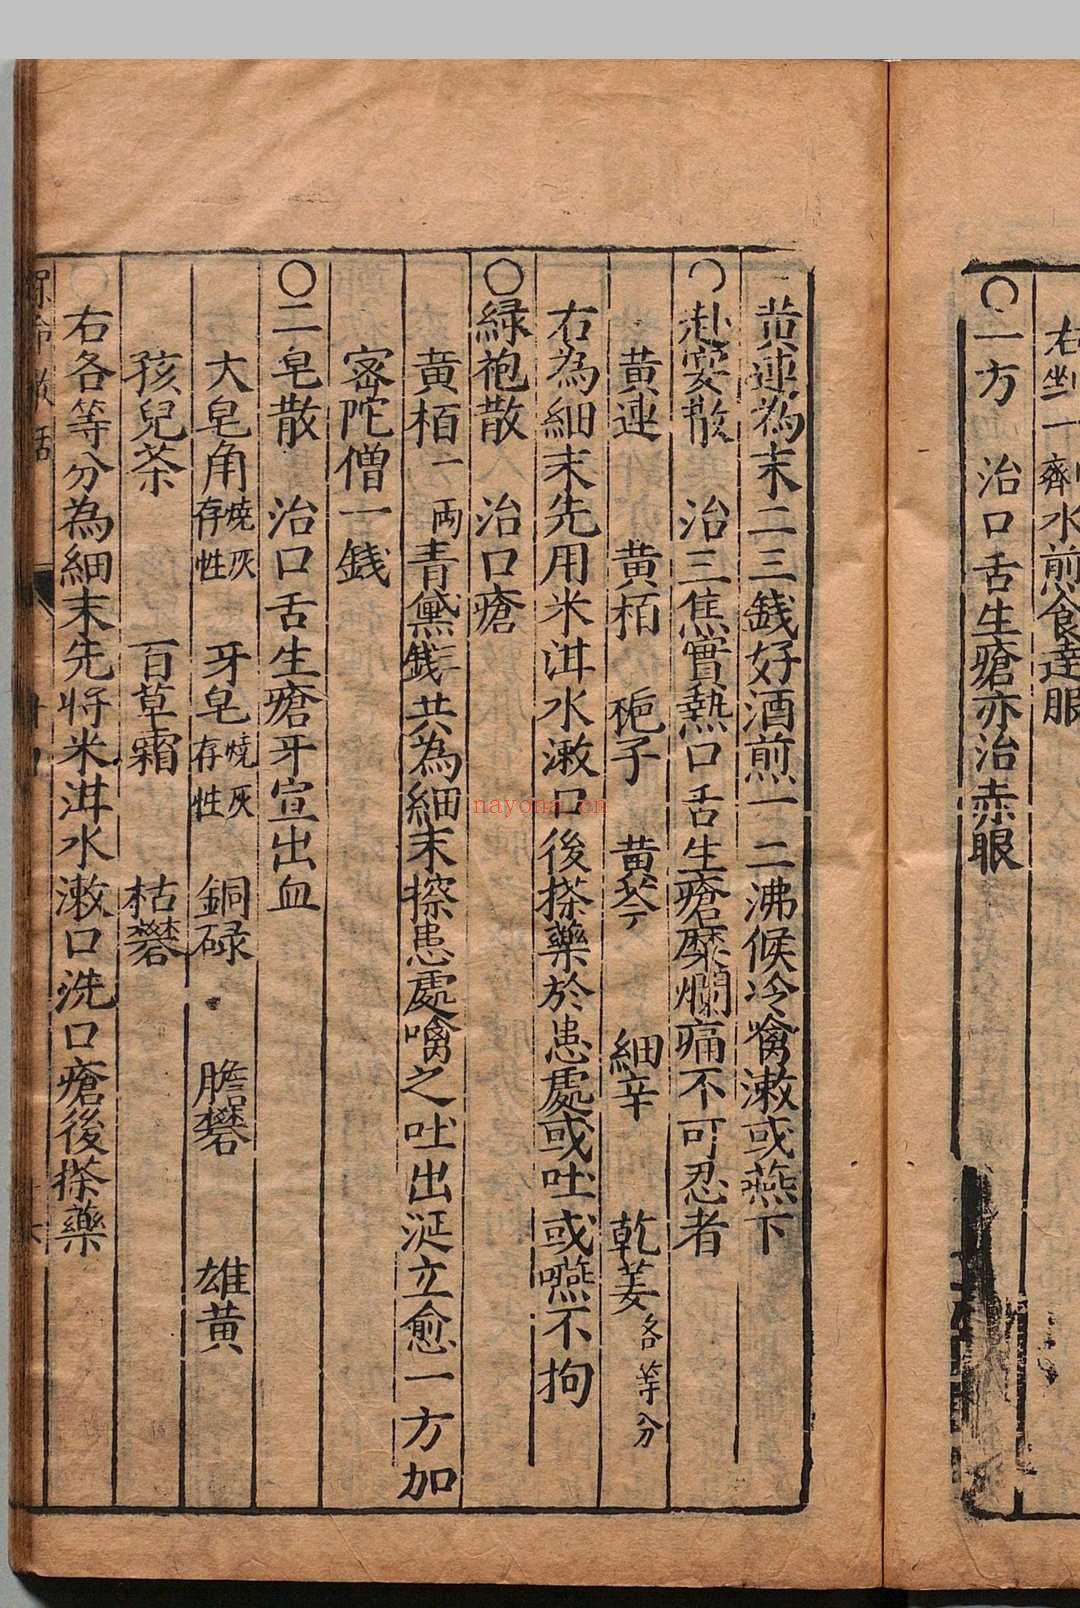 右剉一劑水煎食遠服
〇一方 治口舌生瘡亦治赤眼
黄連為末二三錢好酒煎一二沸候冷噙漱或燕下
〇赴宴散 治三焦實熱口舌生瘡糜爛痛不可忍者
黄連 黄栢 梔子 黄芩 細辛 乾姜各等分
右為細末先用米泔水漱口後搽藥於患處或吐或嚥不拘
〇緑袍散 治口瘡
黄栢一兩青黛三錢共為細末擦患處噙之吐出涎立愈一方加
密陀僧一錢
〇二皂散 治口舌生瘡牙宣出血
大皂角燒灰存性 牙皂燒灰存性 銅碌 膽礬 雄黄
孩兒茶 百草霜 枯礬
〇右各等分為細末先將米泔水漱口洗口瘡後搽藥
nayona.cn